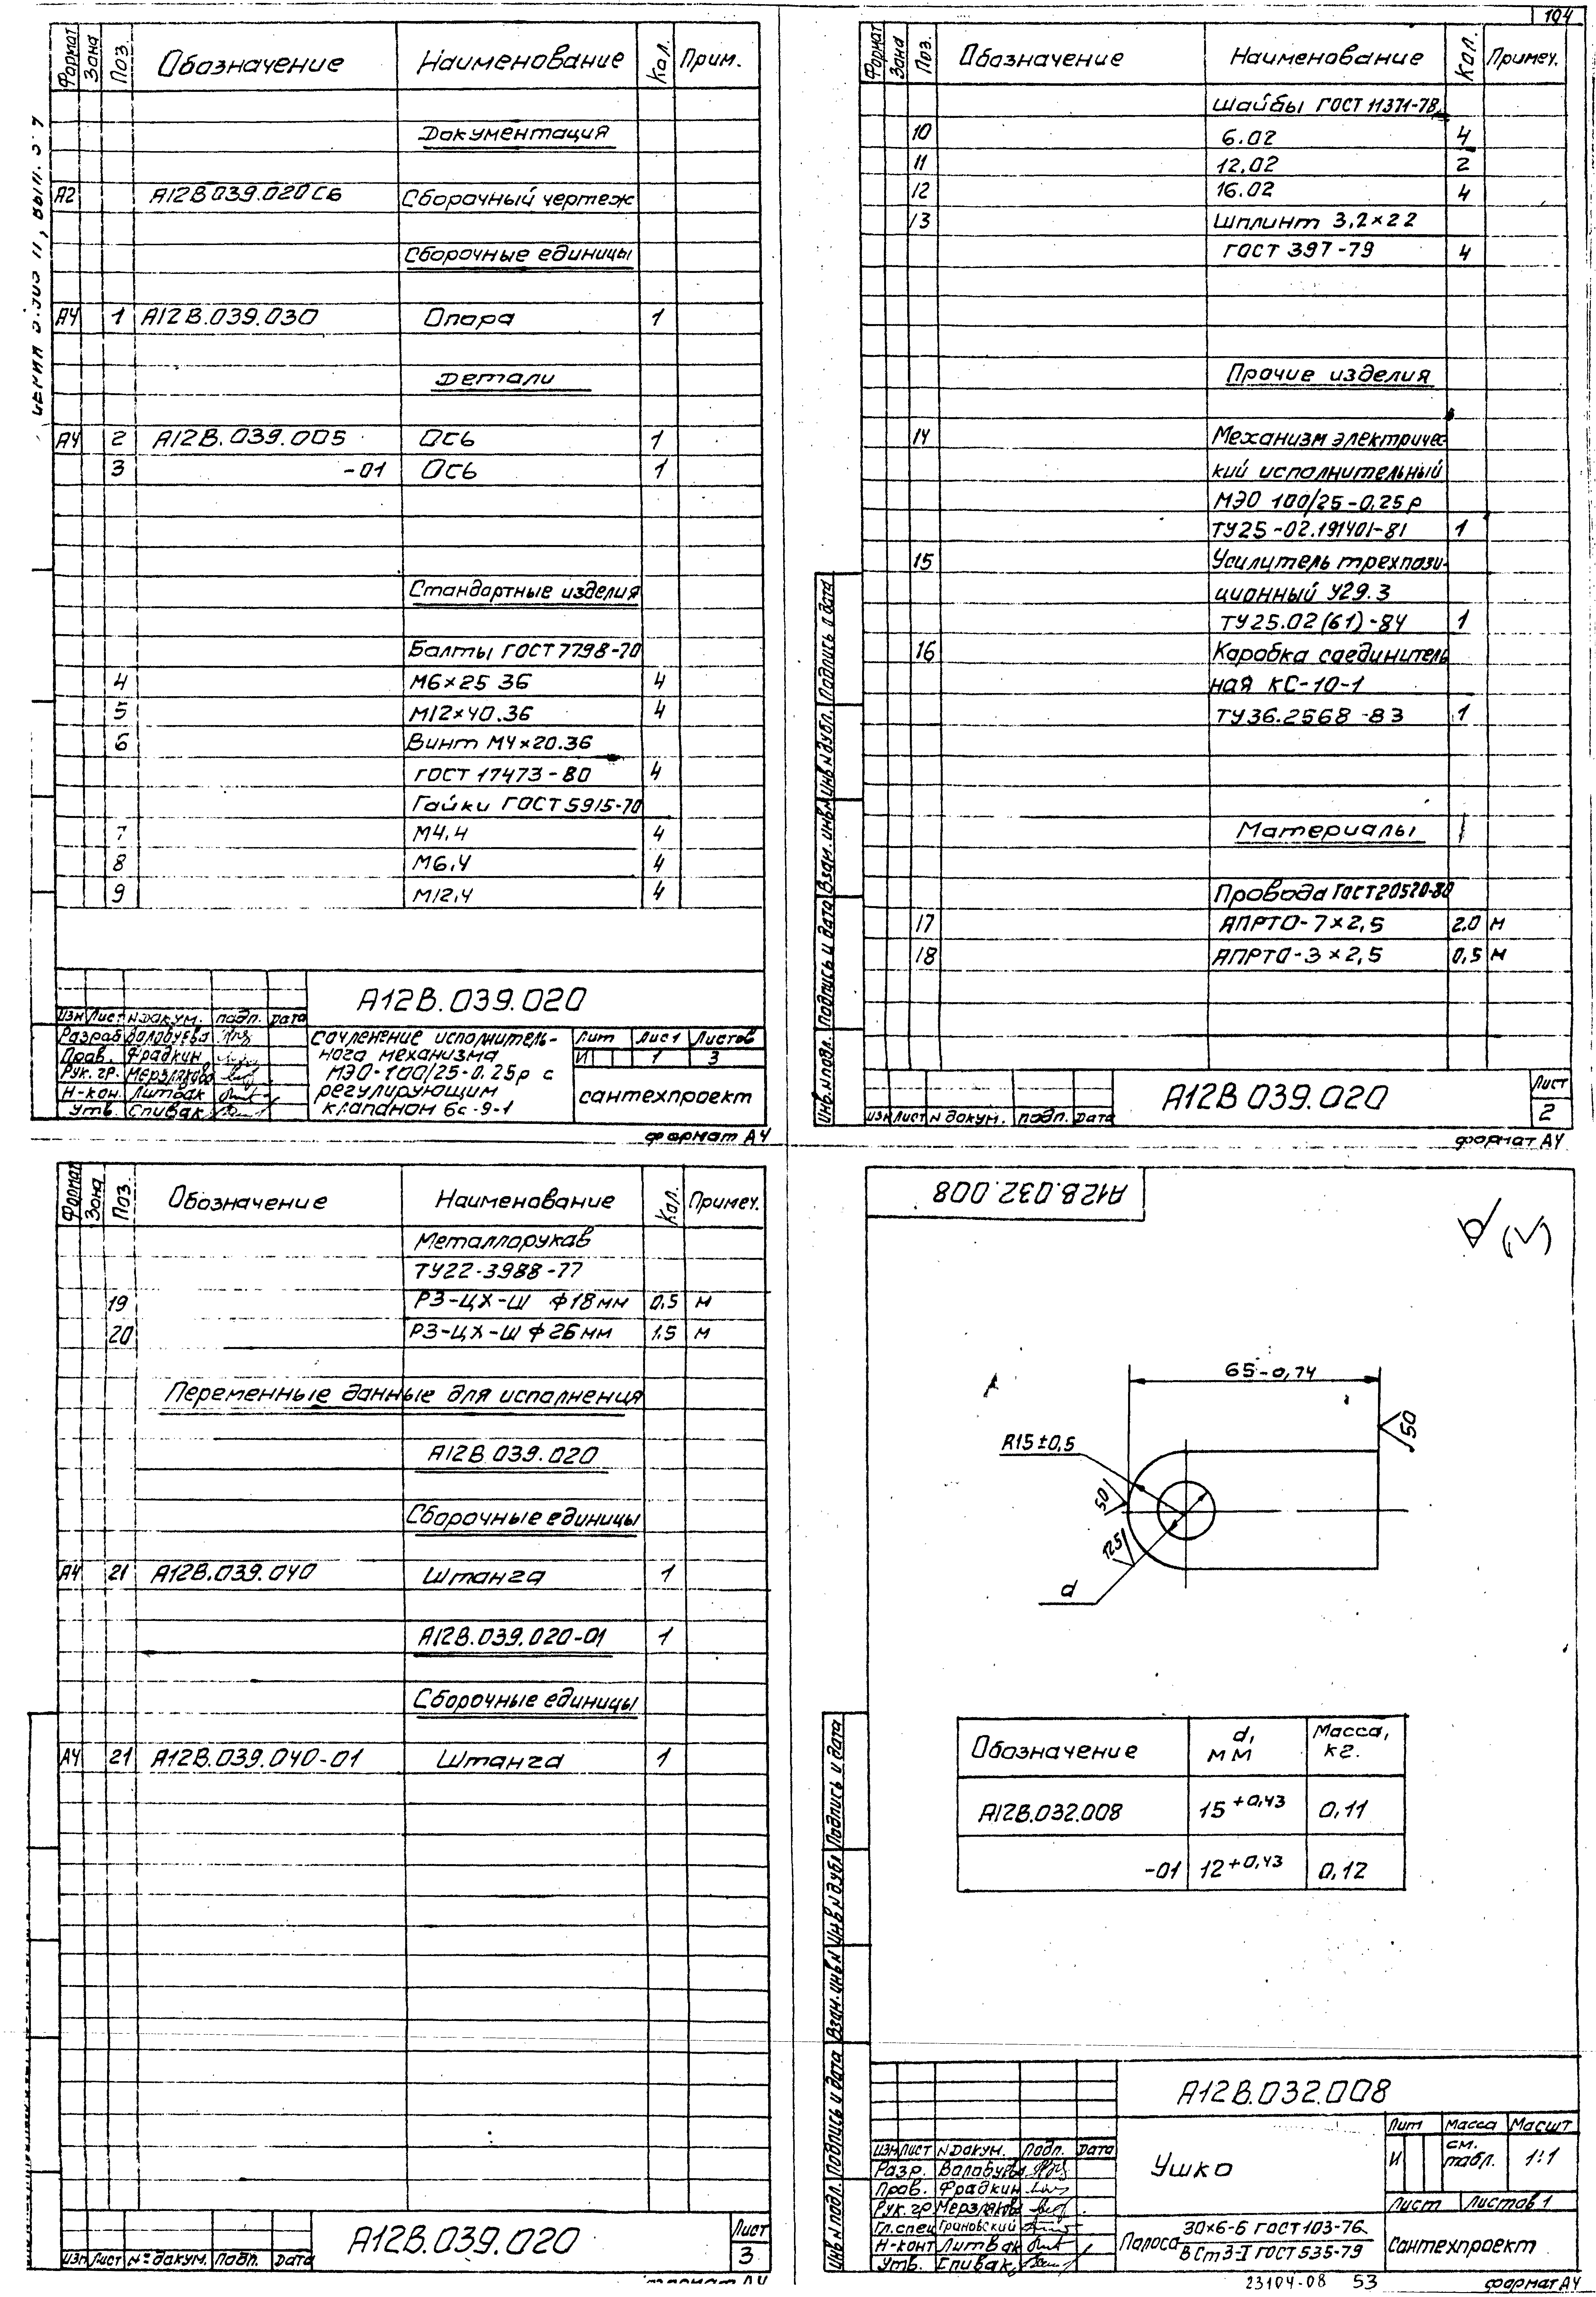 104
Формат Зона Поз. Обозначение Наименование Кол. Прим.
Документация
А2 А12В039.020СБ Сборочный чертеж
Сборочные единицы
А4 1 А12В.039.030 Опора 1
Детали
А4 2 А12В.039.005 Ось 1
3 -01 Ось 1
Стандартные изделия
Болты ГОСТ 7798-70
4 М6×25 36 4
5 М12×40.36 4
6 Винт М4×20.36
ГОСТ 17473-80 4
Гайки ГОСТ 5915-70
7 М4.4 4
8 М6.4 4
9 М12.4 4
А12В.039.020
Изм Лист N докум. подп. Дата
Разраб Валабуева
Пров. Фрадкин
Рук. гр. Мерзлякова
Н-кон. Литвак
Утв. Спивак
Сочленение исполнитель-
ного механизма
МЭО-100/25-0.25р с
регулирующим
клапаном 6с-9-1
Лит Лист Листов
И 1 3
сантехпроект
формат А4
Формат Зона Поз. Обозначение Наименование Кол. Примеч.
Шайбы ГОСТ 11371-78
10 6.02 4
11 12.02 2
12 16.02 4
13 Шплинт 3,2×22
ГОСТ 397-79 4
Прочие изделия
14 Механизм электричес-
кий исполнительный
МЭО 100/25-0,25р
ТУ25-02.191401-81 1
15 Усилитель трехпози-
ционный У29.3
ТУ25.02(61)-84 1
16 Коробка соединитель
ная КС-10-1
ТУ36.2568-83 1
Материалы
Провода ГОСТ 20520-80
17 АПРТО-7×2,5 2.0 м
18 АПРТО-3×2,5 0,5 м
Инв.N подл. Подпись и дата Взам. инв.N Инв N дубл. Подпись и дата
Изм Лист N докум. подп. Дата
А12В 039.020
Лист
2
формат А4
Формат Зона Поз. Обозначение Наименование Кол. Примеч.
Металлорукав
ТУ22-3988-77
19 РЗ-ЦХ-Ш ф18мм 0.5 м
20 РЗ-ЦХ-Ш ф26мм 1.5 м
Переменные данные для исполнения
А12В 039.020
Сборочные единицы
А4 21 А12В.039.040 Штанга 1
А12В.039.020-01 1
Сборочные единицы
А4 21 А12В.039.040-01 Штанга 1
Изм Лист N° докум. Подп. Дата
А12В.039.020
Лист
3
А12В.032.008
(√)
65-0,74
50
R15±0,5
50
12,5
d
Обозначение d, мм Масса, кг.
А12В.032.008 15+0,43 0,11
-01 12+0,43 0,12
Инв N подл. Подпись и дата Взам. инв.N Инв N дубл Подпись и дата
А12В.032.008
Изм Лист N докум. Подп. Дата
Разр. Валабуева
Пров. Фрадкин
Рук. гр Мерзлякова
Гл.спец Грановский
Н-конт Литвак
Утв. Спивак
Ушко
Лит Масса Масшт
И см. табл. 1:1
Лист Листов 1
Полоса 30×6-Б ГОСТ 103-76
ВСт3-I ГОСТ 535-79
сантехпроект
23104-08 53 формат А4